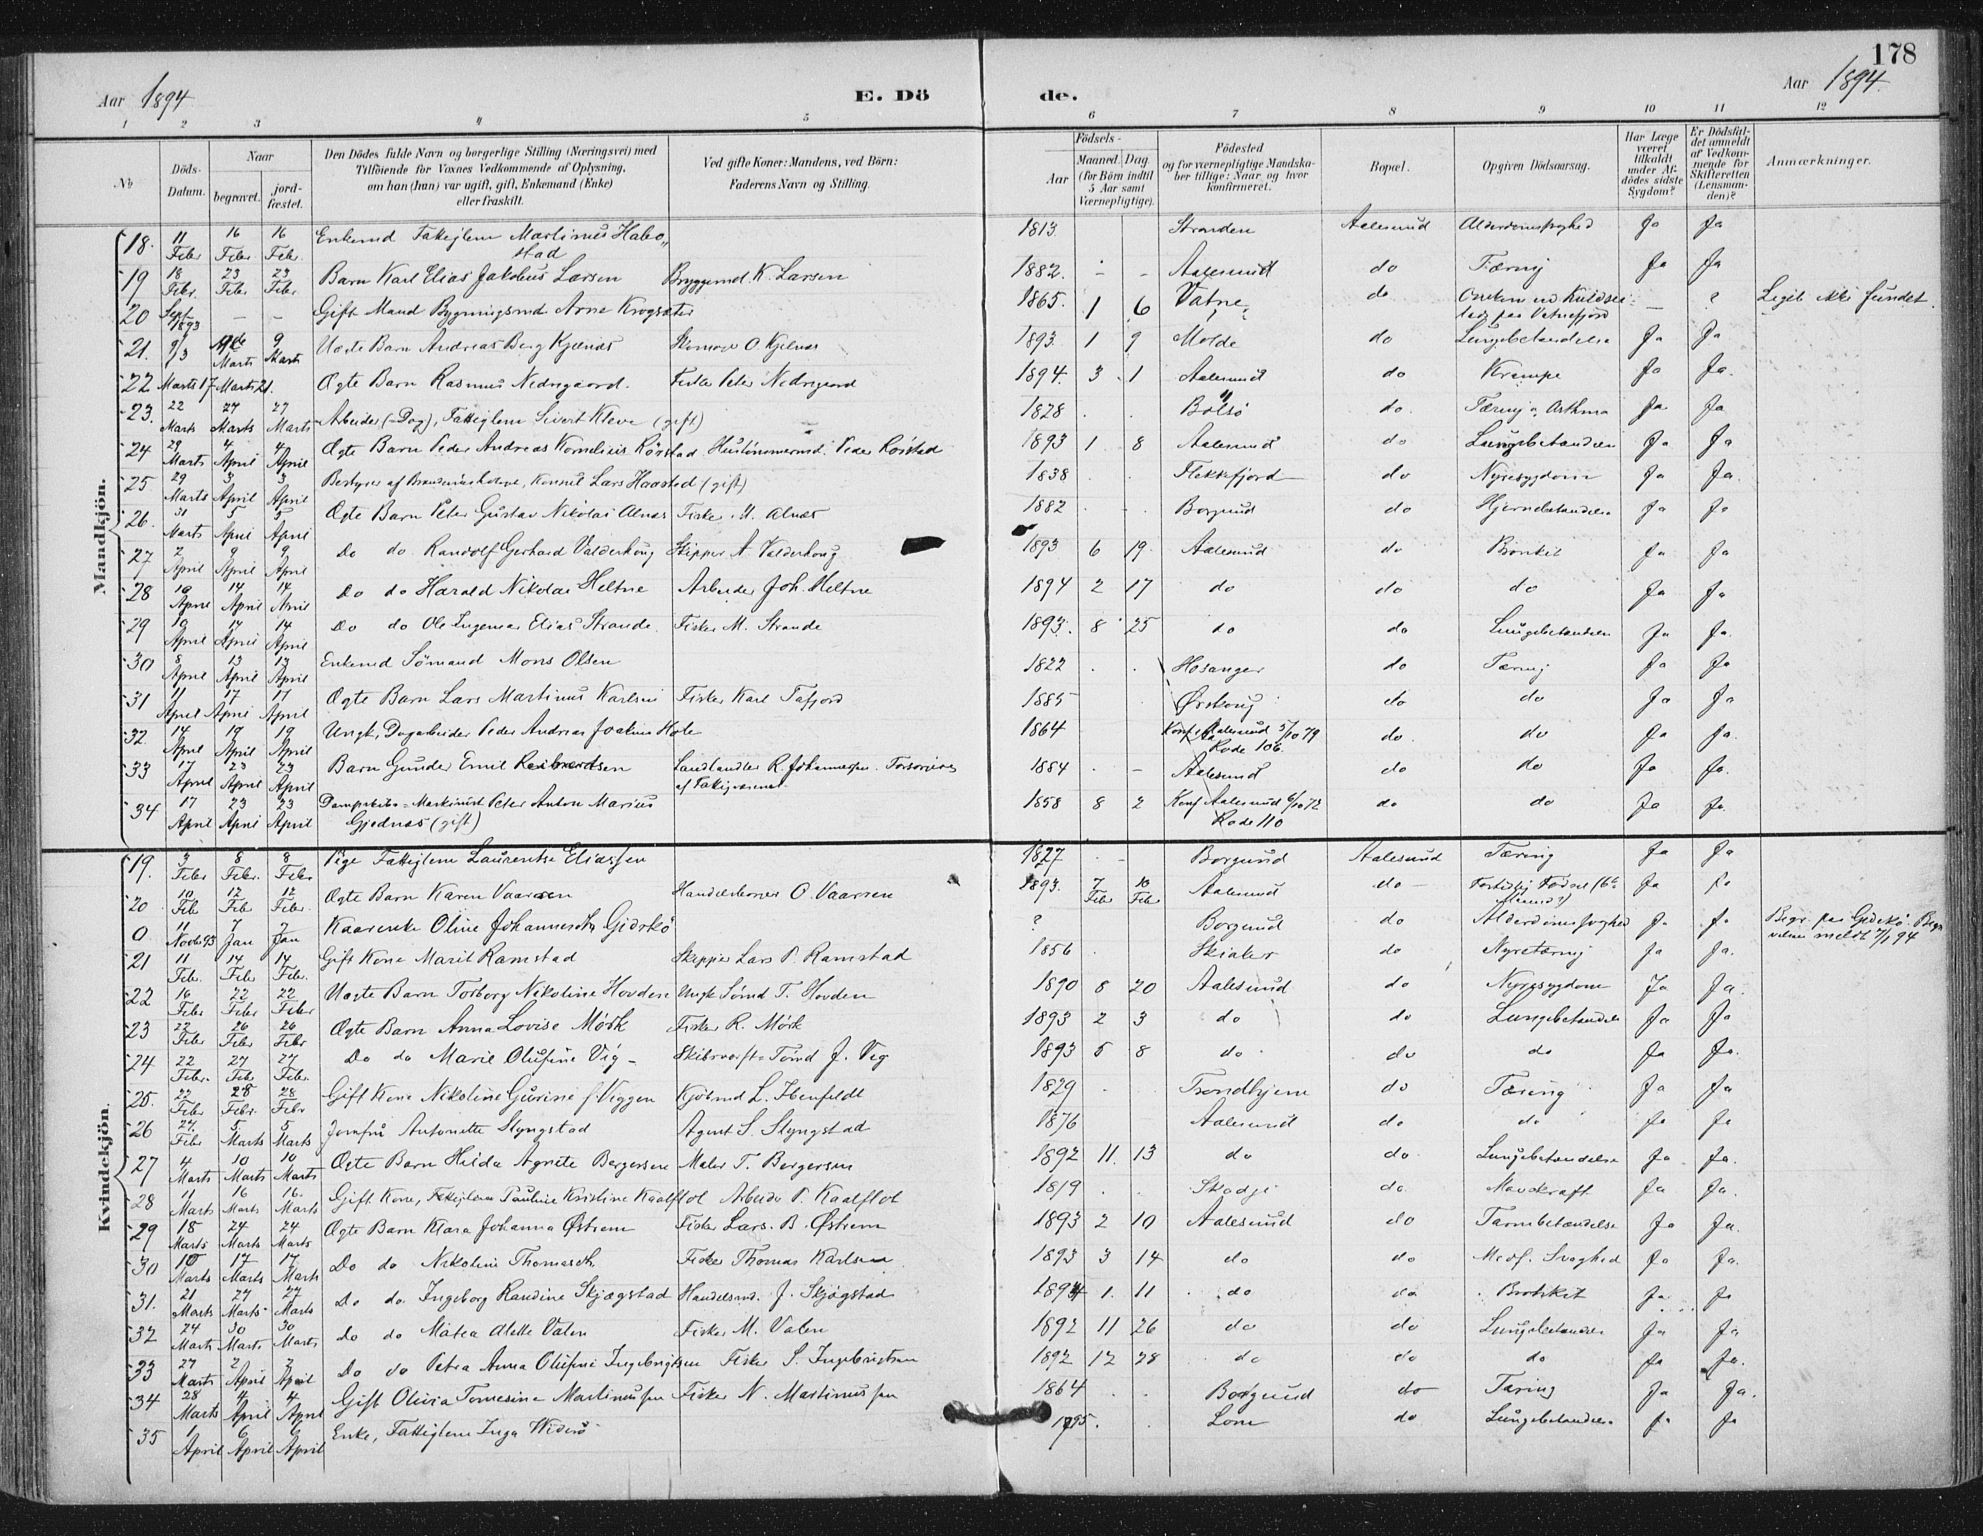 178
Aar 1894
E. Dö
de.
Aar 1894.
1 2 3 4 5 6 7 8 9 10 11 12
No
Döds-Datum.
Naar
begravet.
jord-fæstet.
Den Dödes fulde Navn og borgerlige Stilling (Næringsvei) med
Tilföiende for Voxnes Vedkommende af Oplysning,
om han (hun) var ugift, gift, Enkemand (Enke)
eller fraskilt.
Ved gifte Koner: Mandens, ved Börn:
Faderens Navn og Stilling.
Födsels-
Aar
Maaned Dag
(for Börn indtil
5 Aar samt
Værnepligtige).
Födested
og for værnepligtige Mandska-
ber tillige: Naar og hvor
konfirmeret.
Bopæl.
Opgiven Dödsaarsag.
Har Læge
været
tilkaldt
under Af-
dödes sidste
Sygdom?
Er Dödsfal-
det anmeldt
af Vedkom-
mende for
Skifteretten
(Lensman-
den)?
Anmærkninger.
Mandkjön.
18. 11 Febr 16 Febr. 16 Febr. Enkemd Fattiglem Martinus Habo- 1813 Stranden Aalesund Alderdomssvaghed Ja Ja
stad
19 18 Febr. 23 Febr 23 Febr Barn Karl Elias Jakobus Larsen Bryggemd K. Larsen 1882. - - Aalesund do Tæring Ja Ja
20 Sept 1893 - - Gift Mand Bygningsmd Arne Krogsæter 1865. 1 6 Vatne do Omkom ved Kuldsei- - ? Legit ikke fundet.
lads paa Vatnefjord
21. 9/3 Marts 9 Marts Uægte Barn Andreas Berg Kjelnæs Skomager O. Kjelnæs 1893. 1 9 Molde do Lungebetændelse Ja Ja
22 Marts 17 Marts 21. Ægte Barn Rasmus Nedregaard. Fisker Peter Nedregaard 1894. 3 1 Aalesund do Krampe Ja Ja.
23. 22 Marts 27 Marts 27 Marts Arbeider (Dag), Fattiglem Sivert Kleve (gift) 1828 Bolsö do. Tæring, Asthma Ja Ja
24 29 Marts 4 April 4 April Ægte Barn Peder Andreas Kornelius Rörstad Hustömmermd. Peder Rörstad 1893 1 8 Aalesund do Lungebetændelse Ja Ja
25 29 Marts 3 April 3 April Bestyrer af Brændevins, Konsul Lars Haastad (gift) 1838 Flekkefjord do Nyresygdom Ja Ja.
26. 31 Marts 5 April 5 April Ægte Barn Peter Gustav Nikolai Alnæs Fisker M. Alnæs 1882 Borgund do Hjernebetændelse Ja Ja
27 2 April 9 April 9 April Do do Randolf Gerhard Valderhoug Skipper A. Valderhoug 1893 6 19 Aalesund do Bronkit Ja Ja
28 10 April 14 April 14 April Do do Harald Nikolai Heltne Arbeider Joh. Heltne 1894 2 17 do do do Ja Ja
29 10 April 14 April 14 April Do do Ole Ingemar Elias Strande. Fisker M. Strande 1893. 8 25 do do Lungebetændelse Ja Ja.
30 8 April 13 April 13 April Enkemd Sömand Mons Olsen 1822 Hosanger do Tæring Ja Ja
31 11 April 17 April 17 April Ægte Barn Lars Martinus Karlsen Fisker Karl Tafjord 1885 Ørskoug do do Ja Ja
32. 14 April 19 April 19 April Ungk., Dagarbeider Peder Andreas Joakim Hole 1864 Konf. Aalesund 5/10 79 do. do Ja Ja.
Rode 106
33 17 April 23 April 23 April Barn Gunder Emil Reibradsen Landhandler R. Johannessen. Forsörges 1884 Aalesund do do Ja Ja.
af Fattigvæsenet
34 17 April 23 April 23 April Dampskibs-Maskinist Peter Anton Marius 1858 8 2 Konf Aalesund 6/10 72 do do Ja Ja.
Gjednæs (gift) Rode 110
Kvindekjön.
19. 3 Febr 8 Febr. 8 Febr Pige Fattiglem Laurentse Eliassen 1827 Borgund Aalesund Tæring Ja Ja
20 10 Feb 12 Feb 12 Febr. Ægte Barn Karen Vaarsen Handelsborger O. Vaarsen 1893. 7 Febr 10 Febr Aalesund do Fortidlig Födsel (6te Ja Ja
0 11 Novbr 93 7 Jan 7 Jan Kaarenke Oline Johannesdt Giskö ? Borgund do Alderdomssvaghed Ja Ja. Begr. paa Gidskö. Begr
velsen meldt 7/1 94
21 11 Feb. 14 Febr 14 Febr. Gift Kone Marit Ramstad Skipper Lars P. Ramstad 1856 Skiaker do Nyretæring Ja Ja.
22 16 Febr 22 Febr 22 Febr Uægte Barn Torborg Nikoline Hovden Ungk Sömd T. Hovden 1890 8 20 Aalesund do Nyresygdom Ja Ja.
23 22 Febr 26 Febr 26 Febr Ægte Barn Anna Lovise Mörk Fisker R. Mörk 1893 2 3 do do Lungebetændelse Ja Ja
24 22 Febr. 27 Feb 27 Febr. Do do Marie Olufine Vig Skibsværft-Tömd J. Vig 1893 5 8 do do do Ja Ja.
25. 22 Feb 28 Febr. 28 Febr Gift Kone Nikoline Gurine f. Viggen Kjöbmd L. Ibenfeldt 1829 Trondhjem do Tæring Ja Ja
26 27. Febr 5 Marts 5 Marts Jomfru Antonette Slyngstad Agent S. Slyngstad 1876 Aalesund do do Ja Ja
27 4 Marts 10 Marts 10 Marts Ægte Barn Hilda Agnete Bergersen Maler T. Bergersen 1892 11. 13 do do Lungebetændelse Ja Ja.
28 11 Marts 16 Marts 16. Marts Gift Kone, Fattiglem Pauline Kristine Kaalflot Arbeider P. Kaalflot 1819 Skodje do Mavekræft Ja Ja.
29 18 Marts 24 Marts 24 Marts Ægte Barn Klara Johanna Østrem Fisker Lars. B. Østrem 1893 2 10 Aalesund do Tarmbetændelse Ja Ja.
30 10 Marts 17 Marts 17 Marts Do do Nikoline Thomasdt. Fisker Thomas Karlsen 1893 3 14 do do Medf. Svaghed Ja Ja.
31. 21 Marts 27 Marts 27 Marts Do do. Ingeborg Randine Skjægstad Handelsmd. J. Skjægstad 1894 1. 11 do do Bronkit Ja Ja
32 24 Marts 30 Marts 30 Marts Do do Matea Alette Valen Fisker M. Valen 1892 11 26 do do Lungebetændelse Ja Ja
33 27 Marts 2 April 2 April Do do Petra Anna Olufine Ingebrigtsen Fisker S. Ingebrigtsen 1892 12 28 do do do Ja Ja.
34 28 Marts 4 April 4 April Gift Olivia Tomesine Martinussen Fisker N. Martinussen 1864 Borgund do Tæring Ja Ja.
35 1 April 6 April 6 April Enke, Fattiglem Inga Widerö 1795. Lom do Lungebetændelse Ja Ja